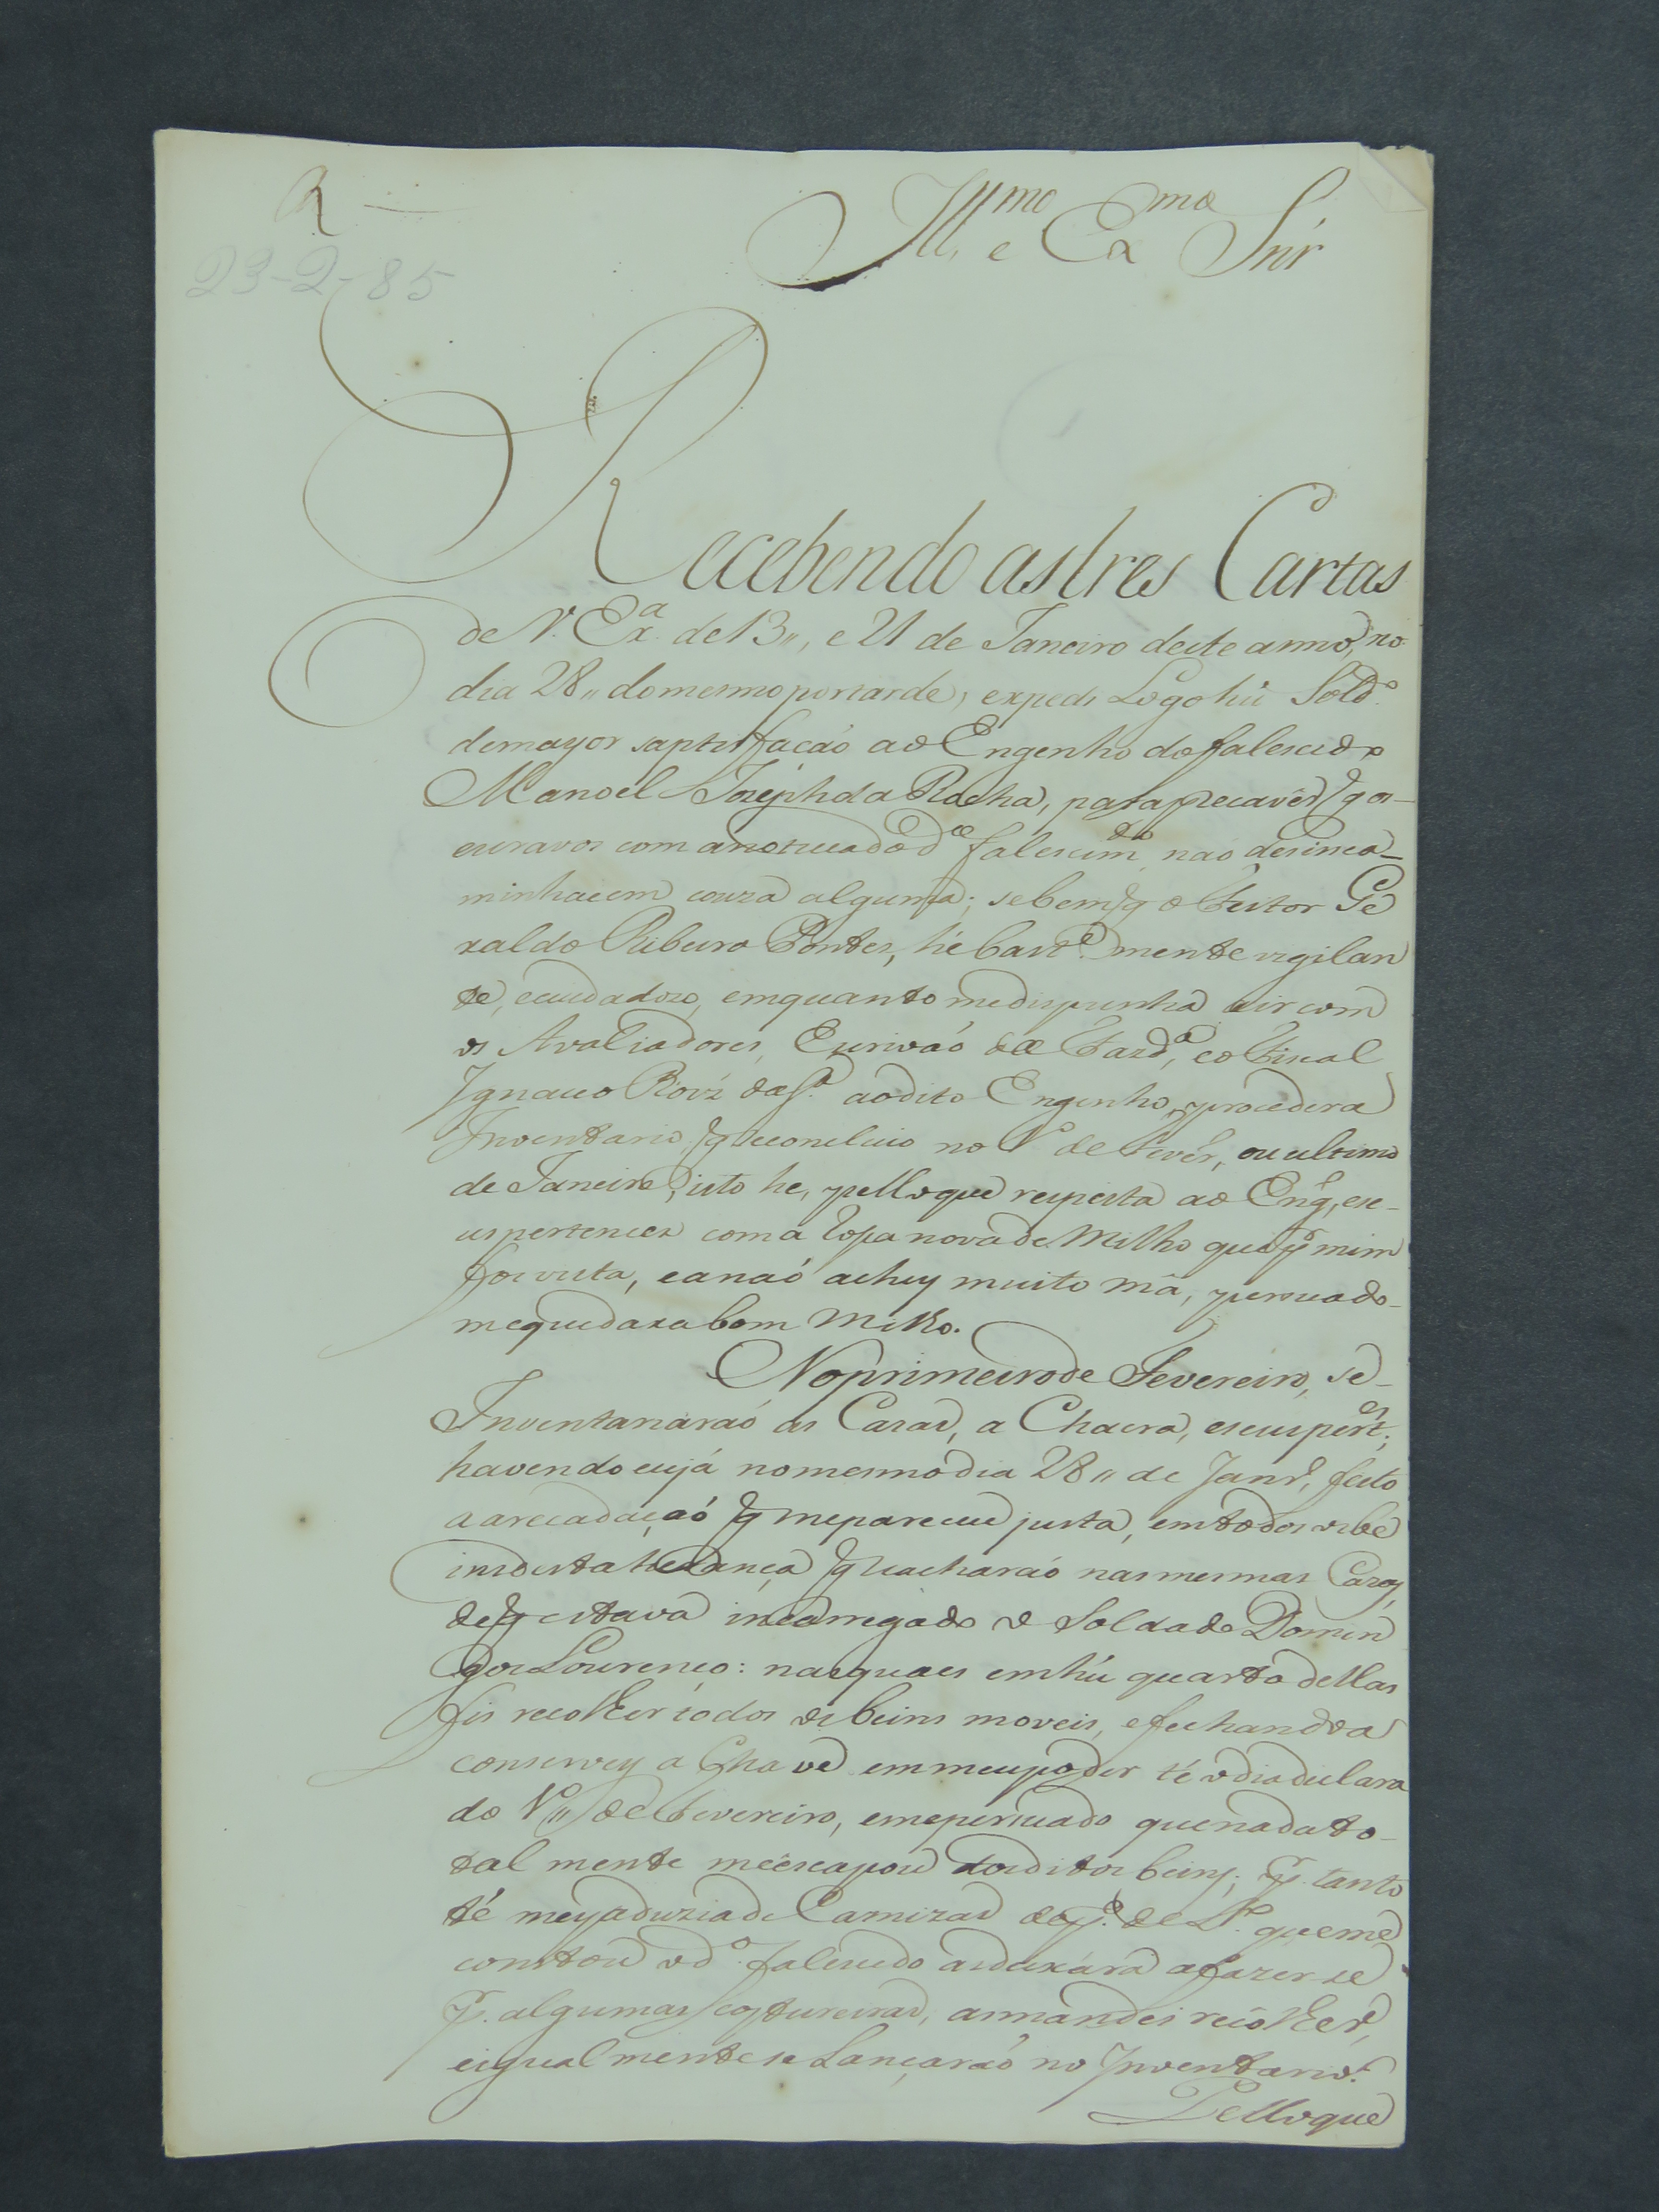 R
23-2-85
Ill.mo e Ex.mo Snr
Recebendo as tres Cartas
de V. Ex.a de 13,, e 21 de Janeiro deste anno, no
dia 28,, do mesmo por tarde, expedi Logo hũ Sold.o
de mayor saptisfacaó ao Engenho do falescido
Manoel Joseph da Rocha, para precaver q os
escravos com a noticia do d.o falescim.to nao desinca-
minhacem couza alguma; se bem q o Feitor Ge
raldo Ribeiro Pontes, hé bast.e mente vigilan
te, e cuidadozo, emquanto me dispunha a ir com
os Avaliadores, Escrivaó da Fazd.a, e o Fiscal
Ignacio Roiz da S.a ao dito Engenho, proceder a
Inventario, q se concluio no 1.o de Fever.o, ou ultimo
de Janeiro, isto he, pello que respeita ao Eng.o, e se-
us pertences com a Ropa nova de Milho que p.r mim
foi vista, e a naó achey muito má, persuado-
me que dara bom Milho.
No primeiro de Fevereiro, se
Inventariaraó as Cazas, a Chacra, e seus pert.es;
havendo eu já no mesmo dia 28,, de Janr.o, feito
a arecadaçaó q me pareceu justa, em todos os be
ins desta herança q se acharaó nas mesmas Cazas,
de q estava incarregado o Soldado Domin
gos Lourenço: nas quaes em hú quarto dellas
fis recolher todos os beins moveis, e fechando a
conservey a Chave em meu poder té o dia declara
do 1.o,, de Fevereiro, e me persuado que nada to-
tal mente me escapou dos ditos beins; p.r tanto
té meya duzia de Camizas de p.o de L.o que me
constou o d.o falescido as deixára a fazer se
p.r algumas costureiras, as mandei recolher,
e igual mente se Lançaraó no Inventario.
Pello que